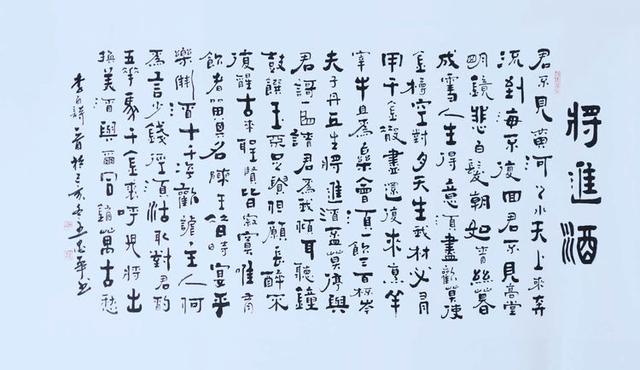 將進酒
君不見黃河之水天上來奔
流到海不復回君不見高堂
明鏡悲白髮朝如青絲暮
成雪人生得意須盡歡莫使
金樽空對月天生我材必有
用千金散盡還復來烹羊
宰牛且為樂會須一飲三百杯岑
夫子丹丘生將進酒盃莫停與
君歌一曲請君為我傾耳聽鐘
鼓饌玉不足貴但願長醉不
復醒古來聖賢皆寂寞惟有
飲者留其名陳王昔時宴平
樂斗酒十千恣歡謔主人何
為言少錢徑須沽取對君酌
五華馬千金裘呼兒將出
換美酒與爾同銷萬古愁
李白詩